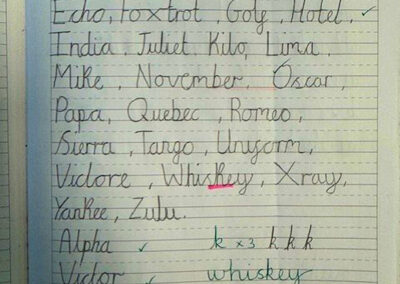 Echo, Foxtrot, Golf, Hotel, ✓
India, Juliet Kilo, Lima,
Mike, November, Oscar,
Papa, Quebec, Romeo,
Sierra, Tango, Uniform,
Victore, Whiskey, Xray,
Yankee, Zulu.
Alpha ✓ k x3 k k k
Victor ✓ whiskey